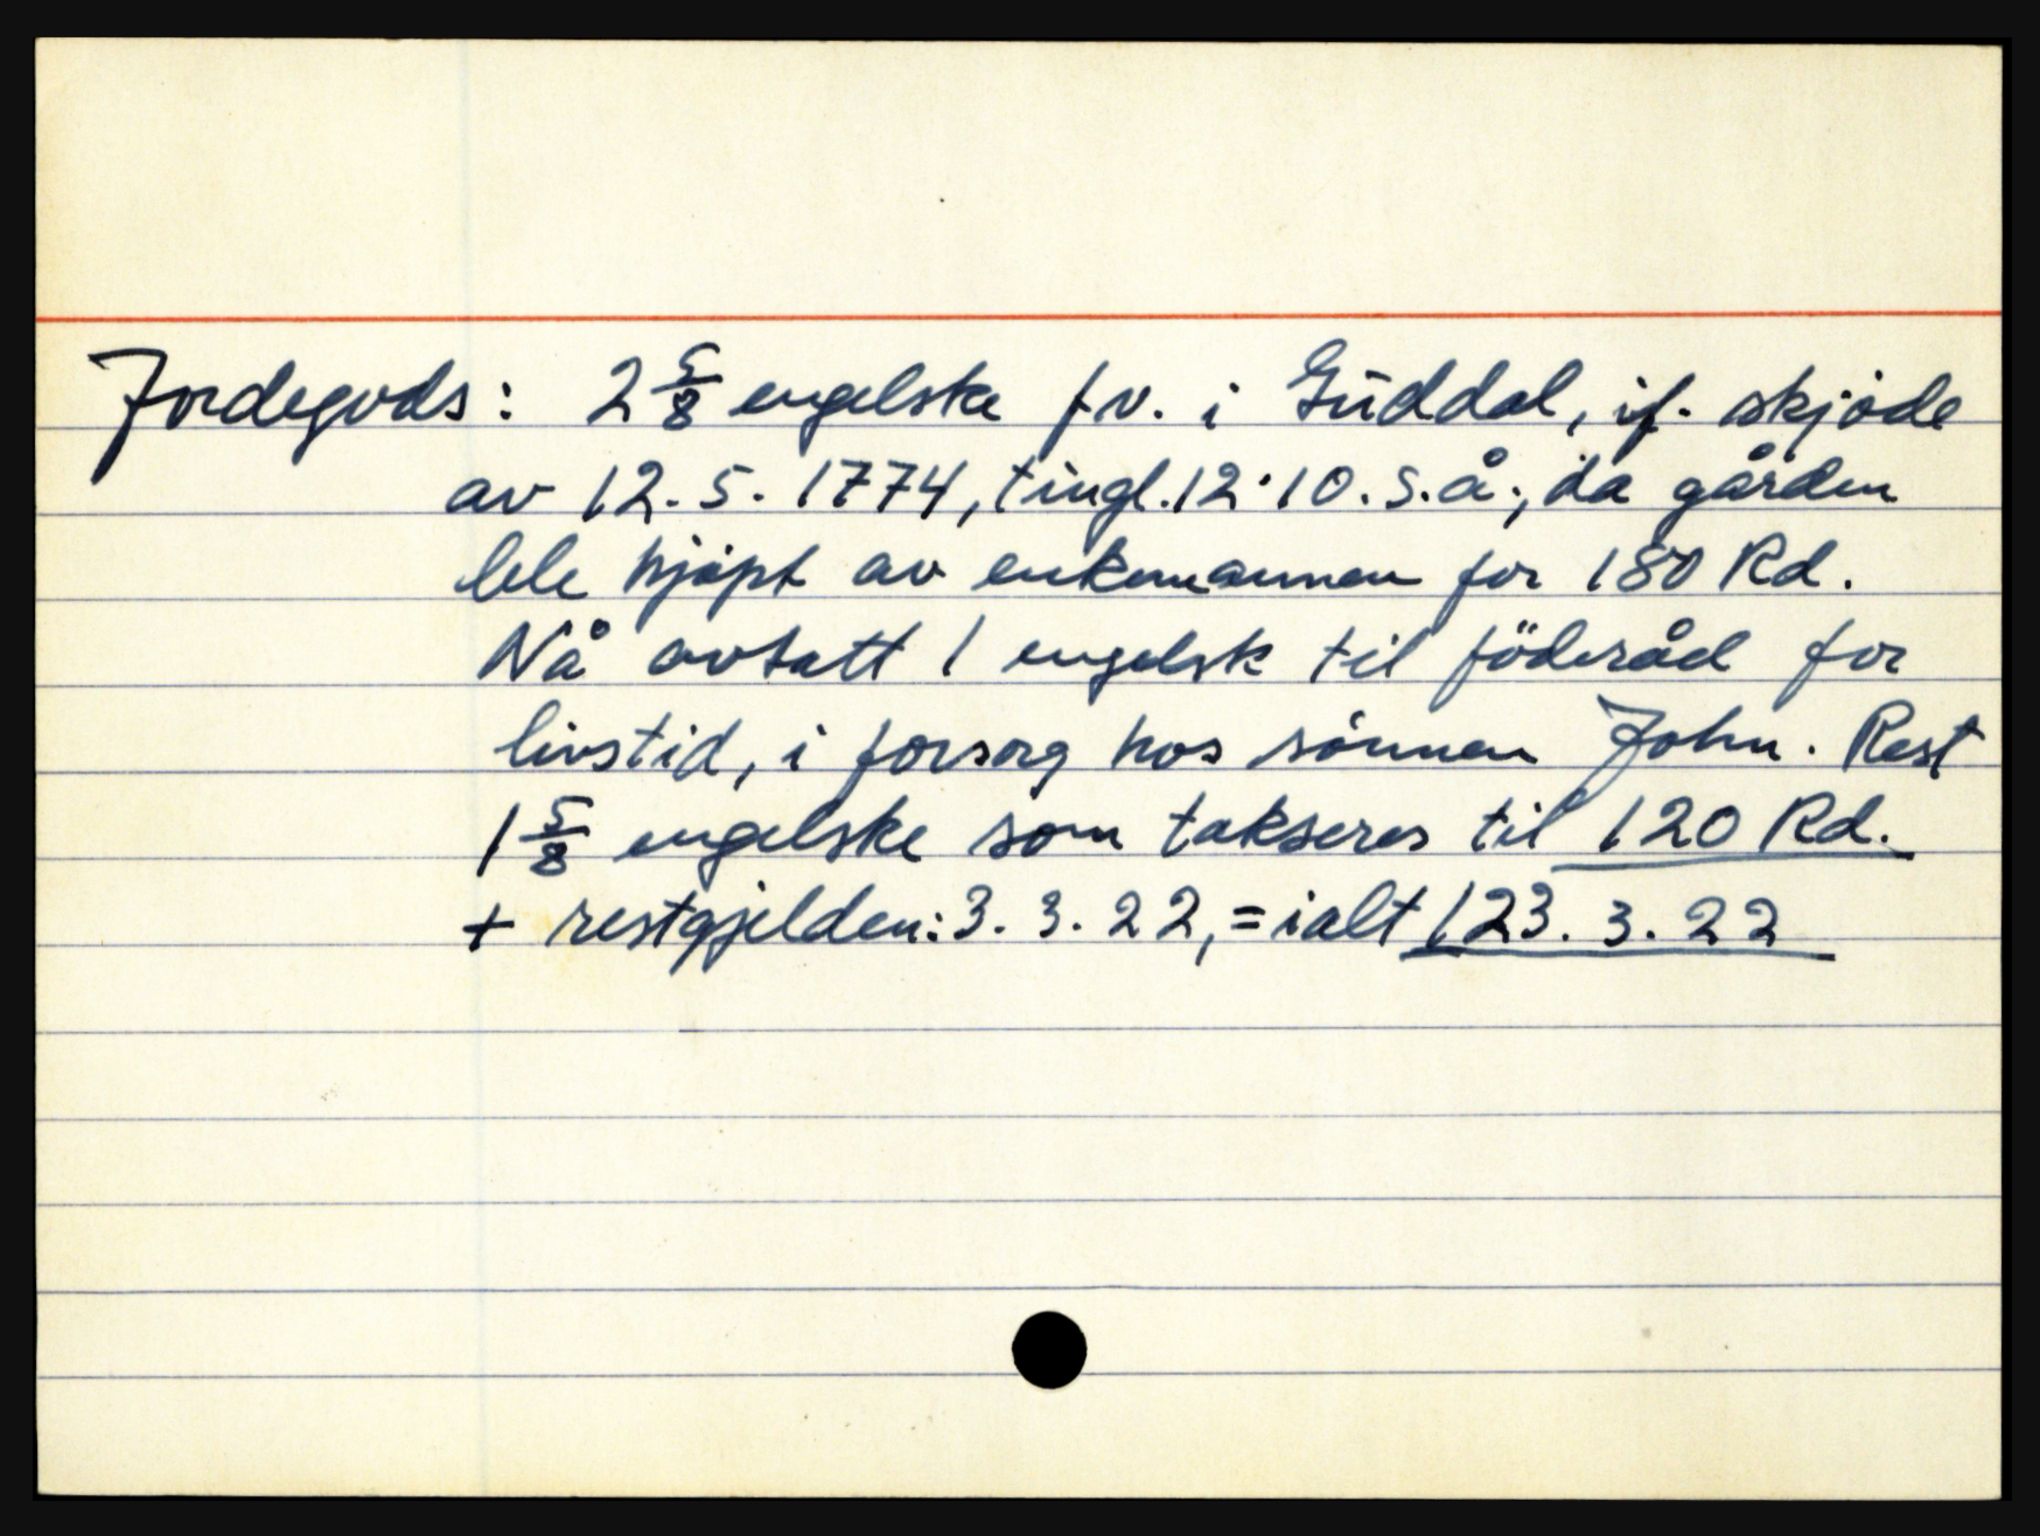 Jordegods: 2 5/8 engelske fv. i Guddal, if. skjøde
av 12. 5. 1774, tingl. 12.10. s.å., da gården
ble kjøpt av enkemannen for 180 Rd.
Nå avsatt 1 engelsk til föderåd for
livstid, i forsorg hos sønnen John. Rest
1 5/8 engelske som takseres til 120 Rd.
+ restgjelden: 3. 3. 22, = ialt 123. 3. 22